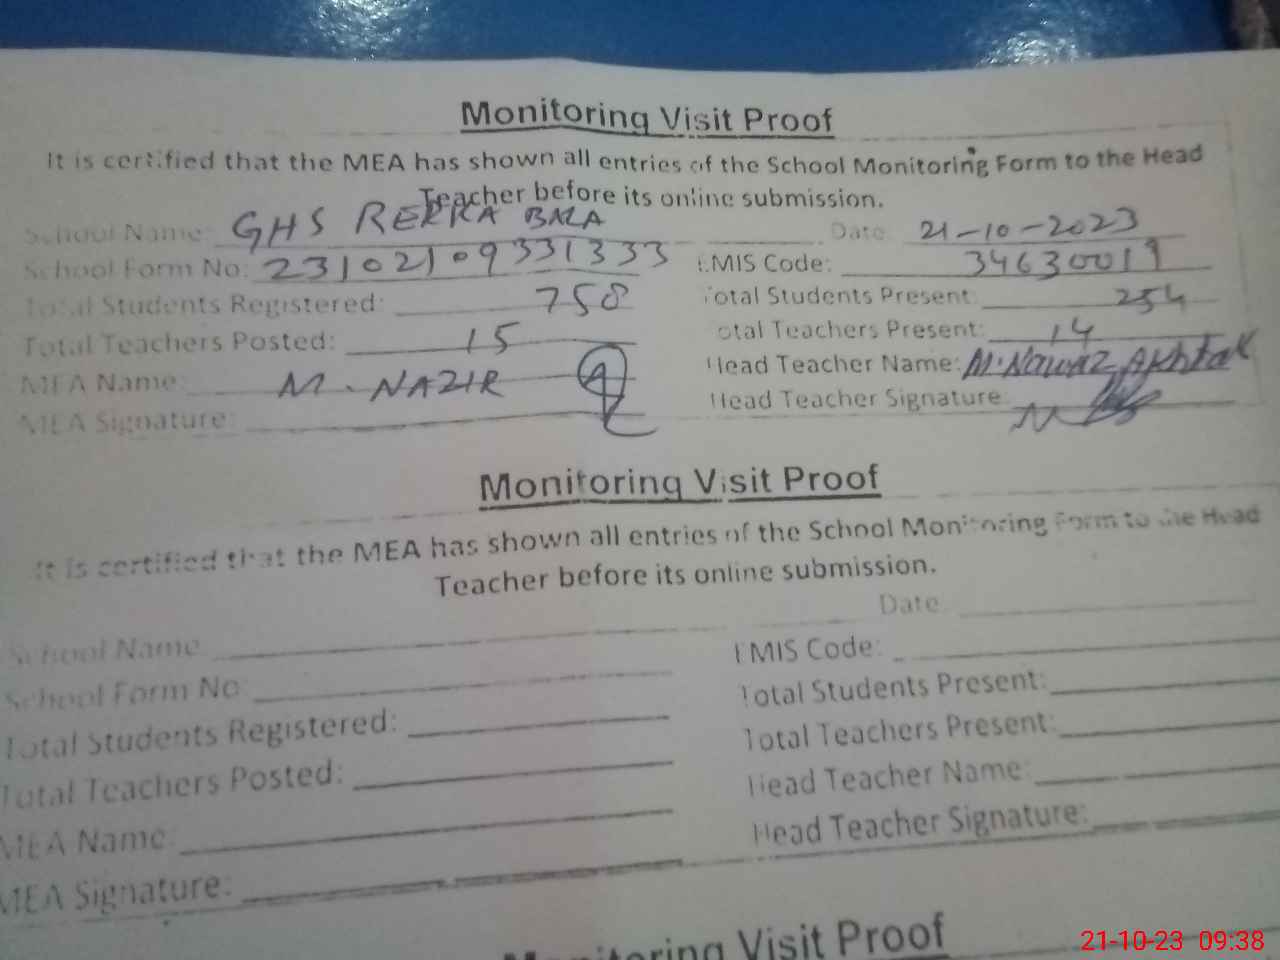 Monitoring Visit Proof
It is certified that the MEA has shown all entries of the School Monitoring Form to the Head
Teacher before its online submission.
School Name: GHS RERKA BALA Date 21-10-2023
School Form No: 23102109331333 EMIS Code: 34630019
Total Students Registered: 758 Total Students Present: 254
Total Teachers Posted: 15 Total Teachers Present: 14
MEA Name: M. NAZIR Head Teacher Name: M. Nawaz Akhtar
MEA Signature: Head Teacher Signature:
Monitoring Visit Proof
It is certified that the MEA has shown all entries of the School Monitoring Form to the Head
Teacher before its online submission.
Date
School Name EMIS Code:
School Form No: Total Students Present:
Total Students Registered: Total Teachers Present:
Total Teachers Posted: Head Teacher Name:
MEA Name: Head Teacher Signature:
MEA Signature:
Monitoring Visit Proof
21-10-23 09:38